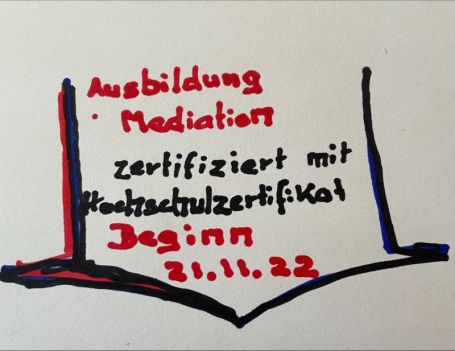 Ausbildung
Mediation
zertifiziert mit
Hochschulzertifikat
Beginn
21.11.22